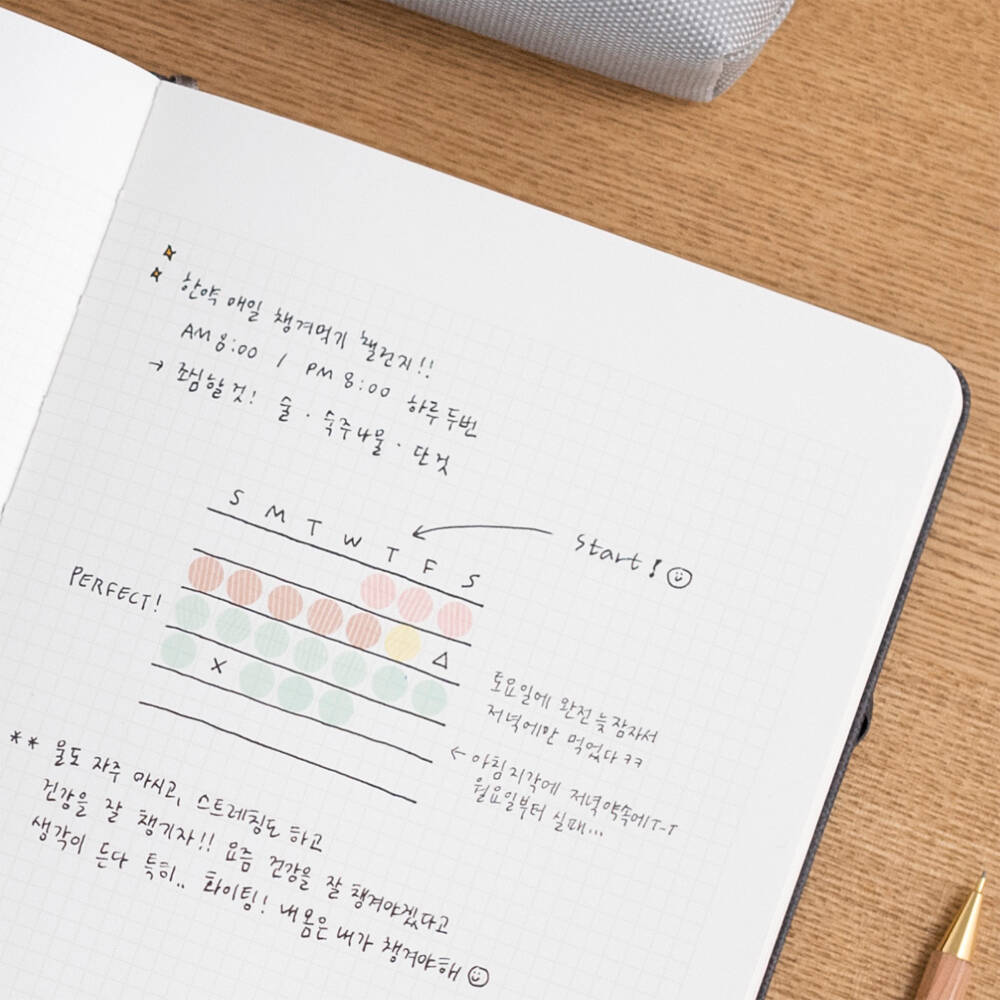 한약 매일 챙겨먹기 챌린지!!
AM 8:00 / PM 8:00 하루 두번
→ 조심할것! 술 · 숙주나물 · 단것
S M T W T F S
← Start!
PERFECT!
△
×
토요일에 완전 늦잠자서
저녁에만 먹었다ㅋㅋ
← 아침지각에 저녁약속에T-T
월요일부터 실패...
** 물도 자주 마시고, 스트레칭도 하고
건강을 잘 챙기자!! 요즘 건강을 잘 챙겨야겠다고
생각이 든다 특히.. 화이팅! 내몸은 내가 챙겨야해